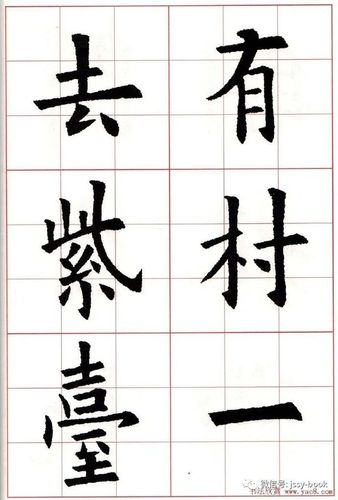 有村一
去紫臺
微信号: jssy-book
书法欣赏
www.yac8.com